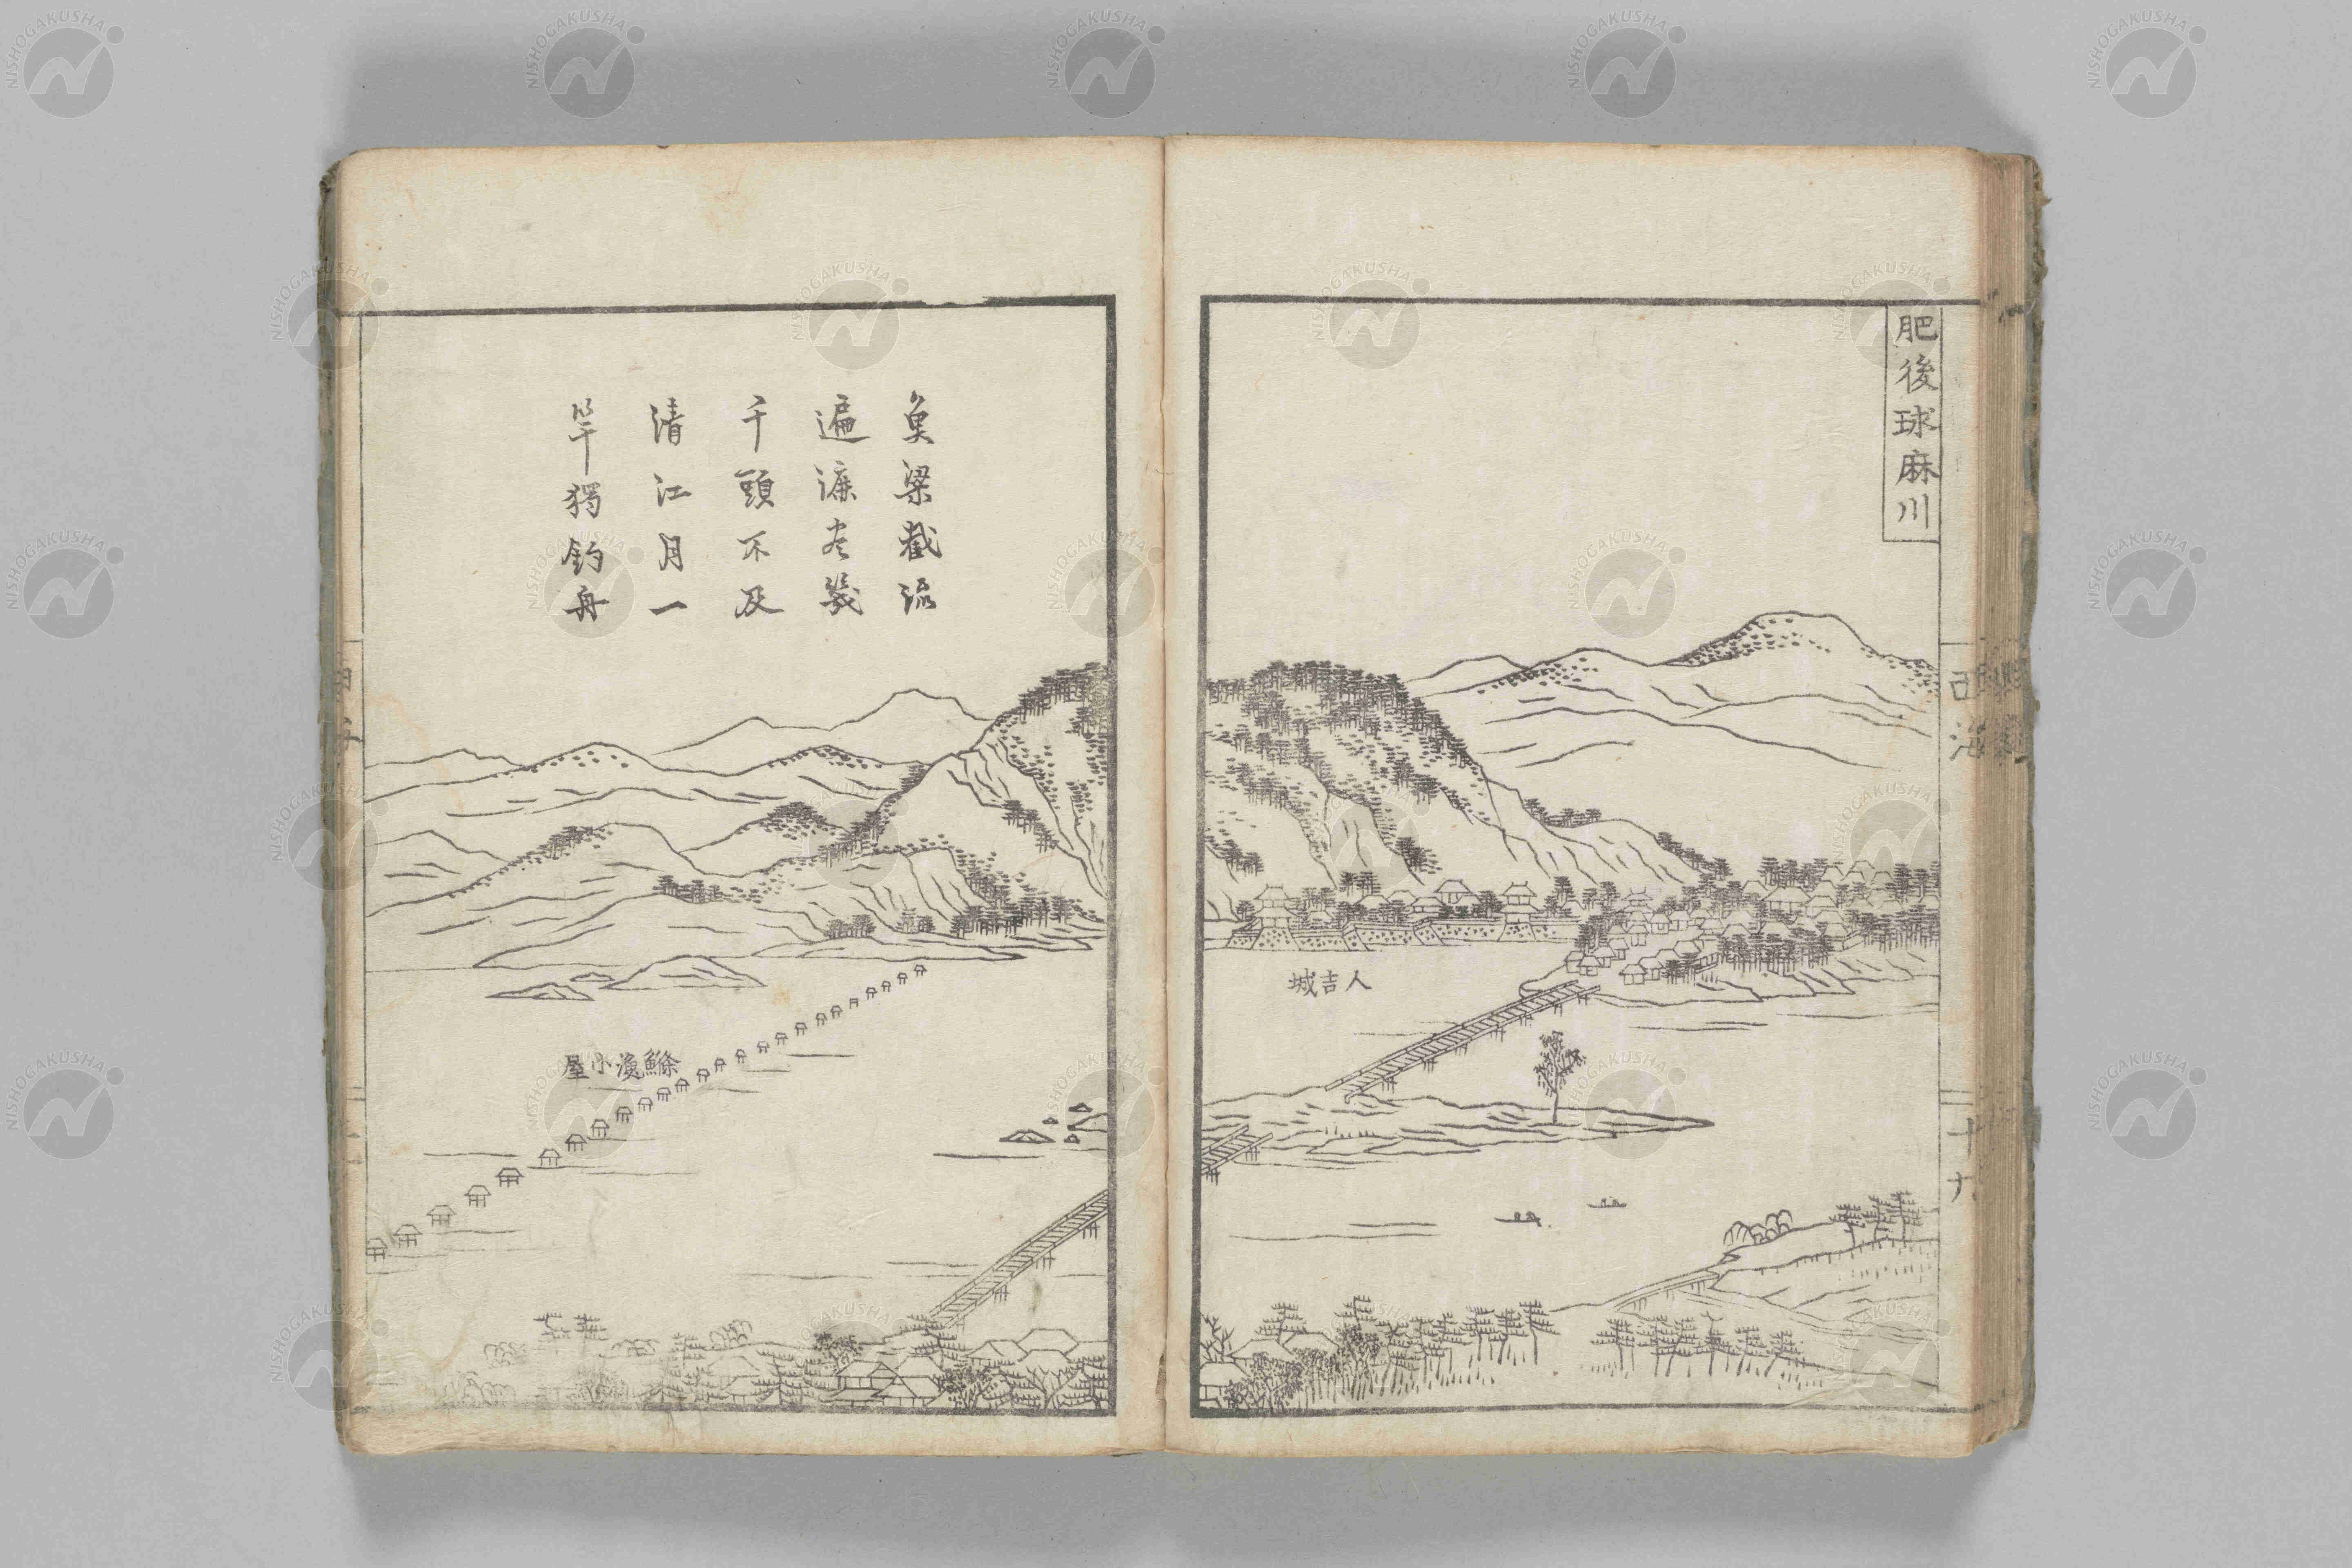 肥後球麻川
人吉城
西海
十九
魚梁截流
遍尽幾
千頭不及
清江月一
竿獨釣舟
鰷漁小屋
NISHOGAKUSHA